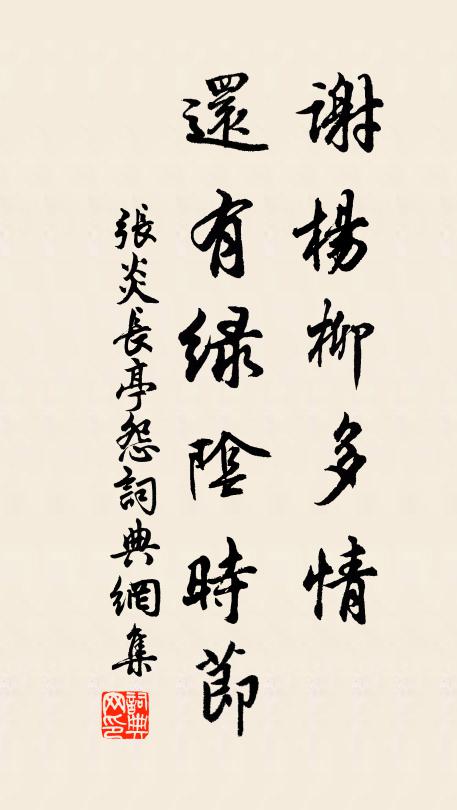 謝楊柳多情
還有緑陰時節
張炎長亭怨詞典網集
詞典网印